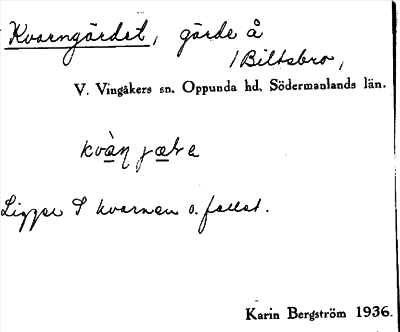 Kvarngärdet, gärde å
/Biltsbro,
V. Vingåkers sn. Oppunda hd. Södermanlands län.
Ligger I kvarnen o. fallet.
Karin Bergström 1936.